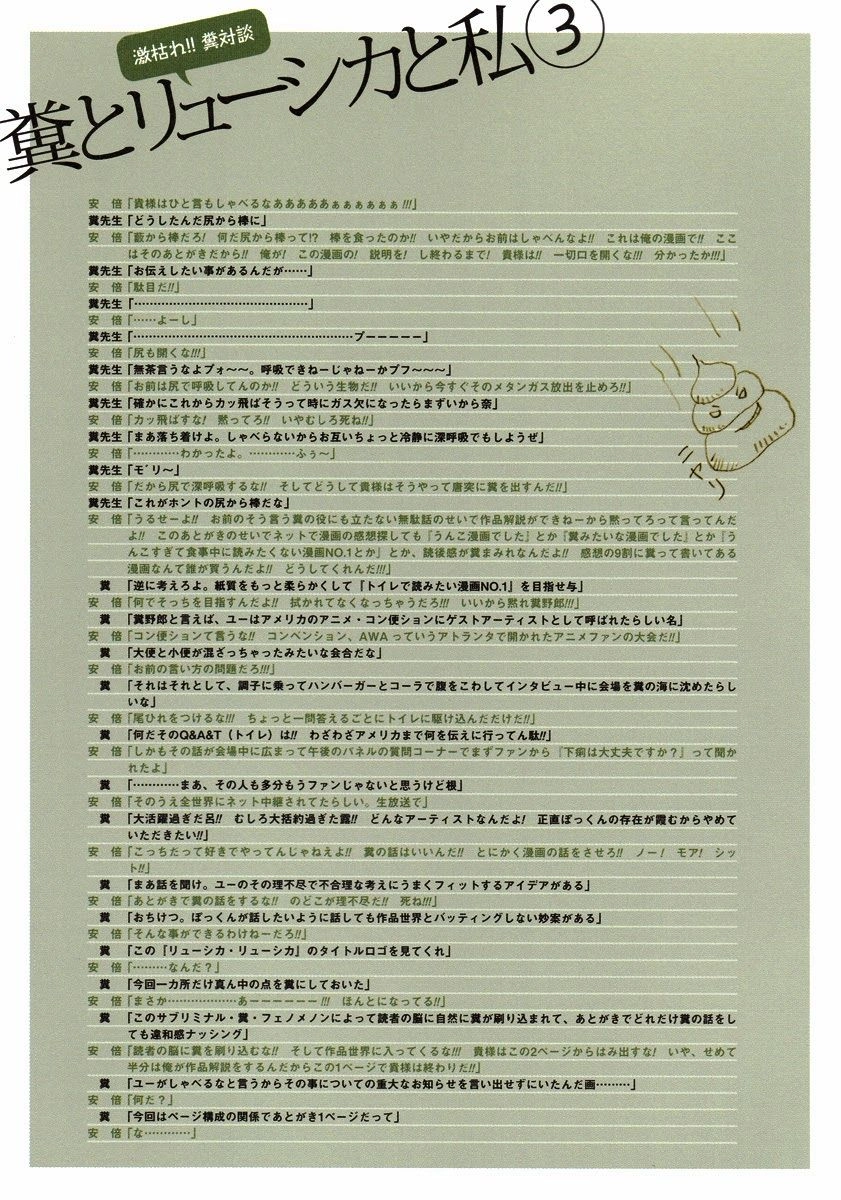 激枯れ!! 糞対談
糞とリューシカと私③
安　倍「貴様はひと言もしゃべるなあああああぁぁぁぁぁぁ!!!」
糞先生「どうしたんだ尻から棒に」
安　倍「藪から棒だろ!　何だ尻から棒って!?　棒を食ったのか!!　いやだからお前はしゃべんなよ!!　これは俺の漫画で!!　ここ
はそのあとがきだから!!　俺が!　この漫画の!　説明を!　し終わるまで!　貴様は!!　一切口を開くな!!!　分かったか!!!」
糞先生「お伝えしたい事があるんだが……」
安　倍「駄目だ!!」
糞先生「…………………………………」
安　倍「……よーし」
糞先生「…………………………………………プーーーーー」
安　倍「尻も開くな!!!」
糞先生「無茶言うなよブォ〜〜。呼吸できねーじゃねーかブフ〜〜〜」
安　倍「お前は尻で呼吸してんのか!!　どういう生物だ!!　いいから今すぐそのメタンガス放出を止めろ!!」
糞先生「確かにこれからカッ飛ばそうって時にガス欠になったらまずいから奈」
安　倍「カッ飛ばすな!　黙ってろ!!　いやむしろ死ね!!」
糞先生「まあ落ち着けよ。しゃべらないからお互いちょっと冷静に深呼吸でもしようぜ」
安　倍「…………わかったよ。…………ふぅ〜」
糞先生「モ゛リ〜」
安　倍「だから尻で深呼吸するな!!　そしてどうして貴様はそうやって唐突に糞を出すんだ!!」
糞先生「これがホントの尻から棒だな」
安　倍「うるせーよ!!　お前のそう言う糞の役にも立たない無駄話のせいで作品解説ができねーから黙ってろって言ってんだ
よ!!　このあとがきのせいでネットで漫画の感想探しても『うんこ漫画でした』とか『糞みたいな漫画でした』とか『う
んこすぎて食事中に読みたくない漫画NO.1とか』とか、読後感が糞まみれなんだよ!!　感想の9割に糞って書いてある
漫画なんて誰が買うんだよ!!　どうしてくれんだ!!!」
糞「逆に考えろよ。紙質をもっと柔らかくして『トイレで読みたい漫画NO.1』を目指せ与」
安　倍「何でそっちを目指すんだよ!!　拭かれてなくなっちゃうだろ!!!　いいから黙れ糞野郎!!!」
糞「糞野郎と言えば、ユーはアメリカのアニメ・コン便ションにゲストアーティストとして呼ばれたらしい名」
安　倍「コン便ションて言うな!!　コンベンション、AWAっていうアトランタで開かれたアニメファンの大会だ!!」
糞「大便と小便が混ざっちゃったみたいな会合だな」
安　倍「お前の言い方の問題だろ!!!」
糞「それはそれとして、調子に乗ってハンバーガーとコーラで腹をこわしてインタビュー中に会場を糞の海に沈めたらし
いな」
安　倍「尾ひれをつけるな!!!　ちょっと一問答えるごとにトイレに駆け込んだだけだ!!」
糞「何だそのQ&A&T（トイレ）は!!　わざわざアメリカまで何を伝えに行ってん駄!!」
安　倍「しかもその話が会場中に広まって午後のパネルの質問コーナーでまずファンから『下痢は大丈夫ですか？』って聞か
れたよ」
糞「…………まあ、その人も多分もうファンじゃないと思うけど根」
安　倍「そのうえ全世界にネット中継されてたらしい。生放送で」
糞「大活躍過ぎだ呂!!　むしろ大括約過ぎた露!!　どんなアーティストなんだよ!　正直ぼっくんの存在が霞むからやめて
いただきたい!!」
安　倍「こっちだって好きでやってんじゃねえよ!!　糞の話はいいんだ!!　とにかく漫画の話をさせろ!!　ノー!　モア!　シッ
ト!!」
糞「まあ話を聞け。ユーのその理不尽で不合理な考えにうまくフィットするアイデアがある」
安　倍「あとがきで糞の話をするな!!　のどこが理不尽だ!!　死ね!!!」
糞「おちけつ。ぼっくんが話したいように話しても作品世界とバッティングしない妙案がある」
安　倍「そんな事ができるわけねーだろ!!」
糞「この『リューシカ・リューシカ』のタイトルロゴを見てくれ」
安　倍「………なんだ？」
糞「今回一カ所だけ真ん中の点を糞にしておいた」
安　倍「まさか………………あーーーーーー!!!　ほんとになってる!!」
糞「このサブリミナル・糞・フェノメノンによって読者の脳に自然に糞が刷り込まれて、あとがきでどれだけ糞の話をし
ても違和感ナッシング」
安　倍「読者の脳に糞を刷り込むな!!　そして作品世界に入ってくるな!!!　貴様はこの2ページからはみ出すな!　いや、せめて
半分は俺が作品解説をするんだからこの1ページで貴様は終わりだ!!」
糞「ユーがしゃべるなと言うからその事についての重大なお知らせを言い出せずにいたんだ画………」
安　倍「何だ？」
糞「今回はページ構成の関係であとがき1ページだって」
安　倍「な…………」
ニヤリ